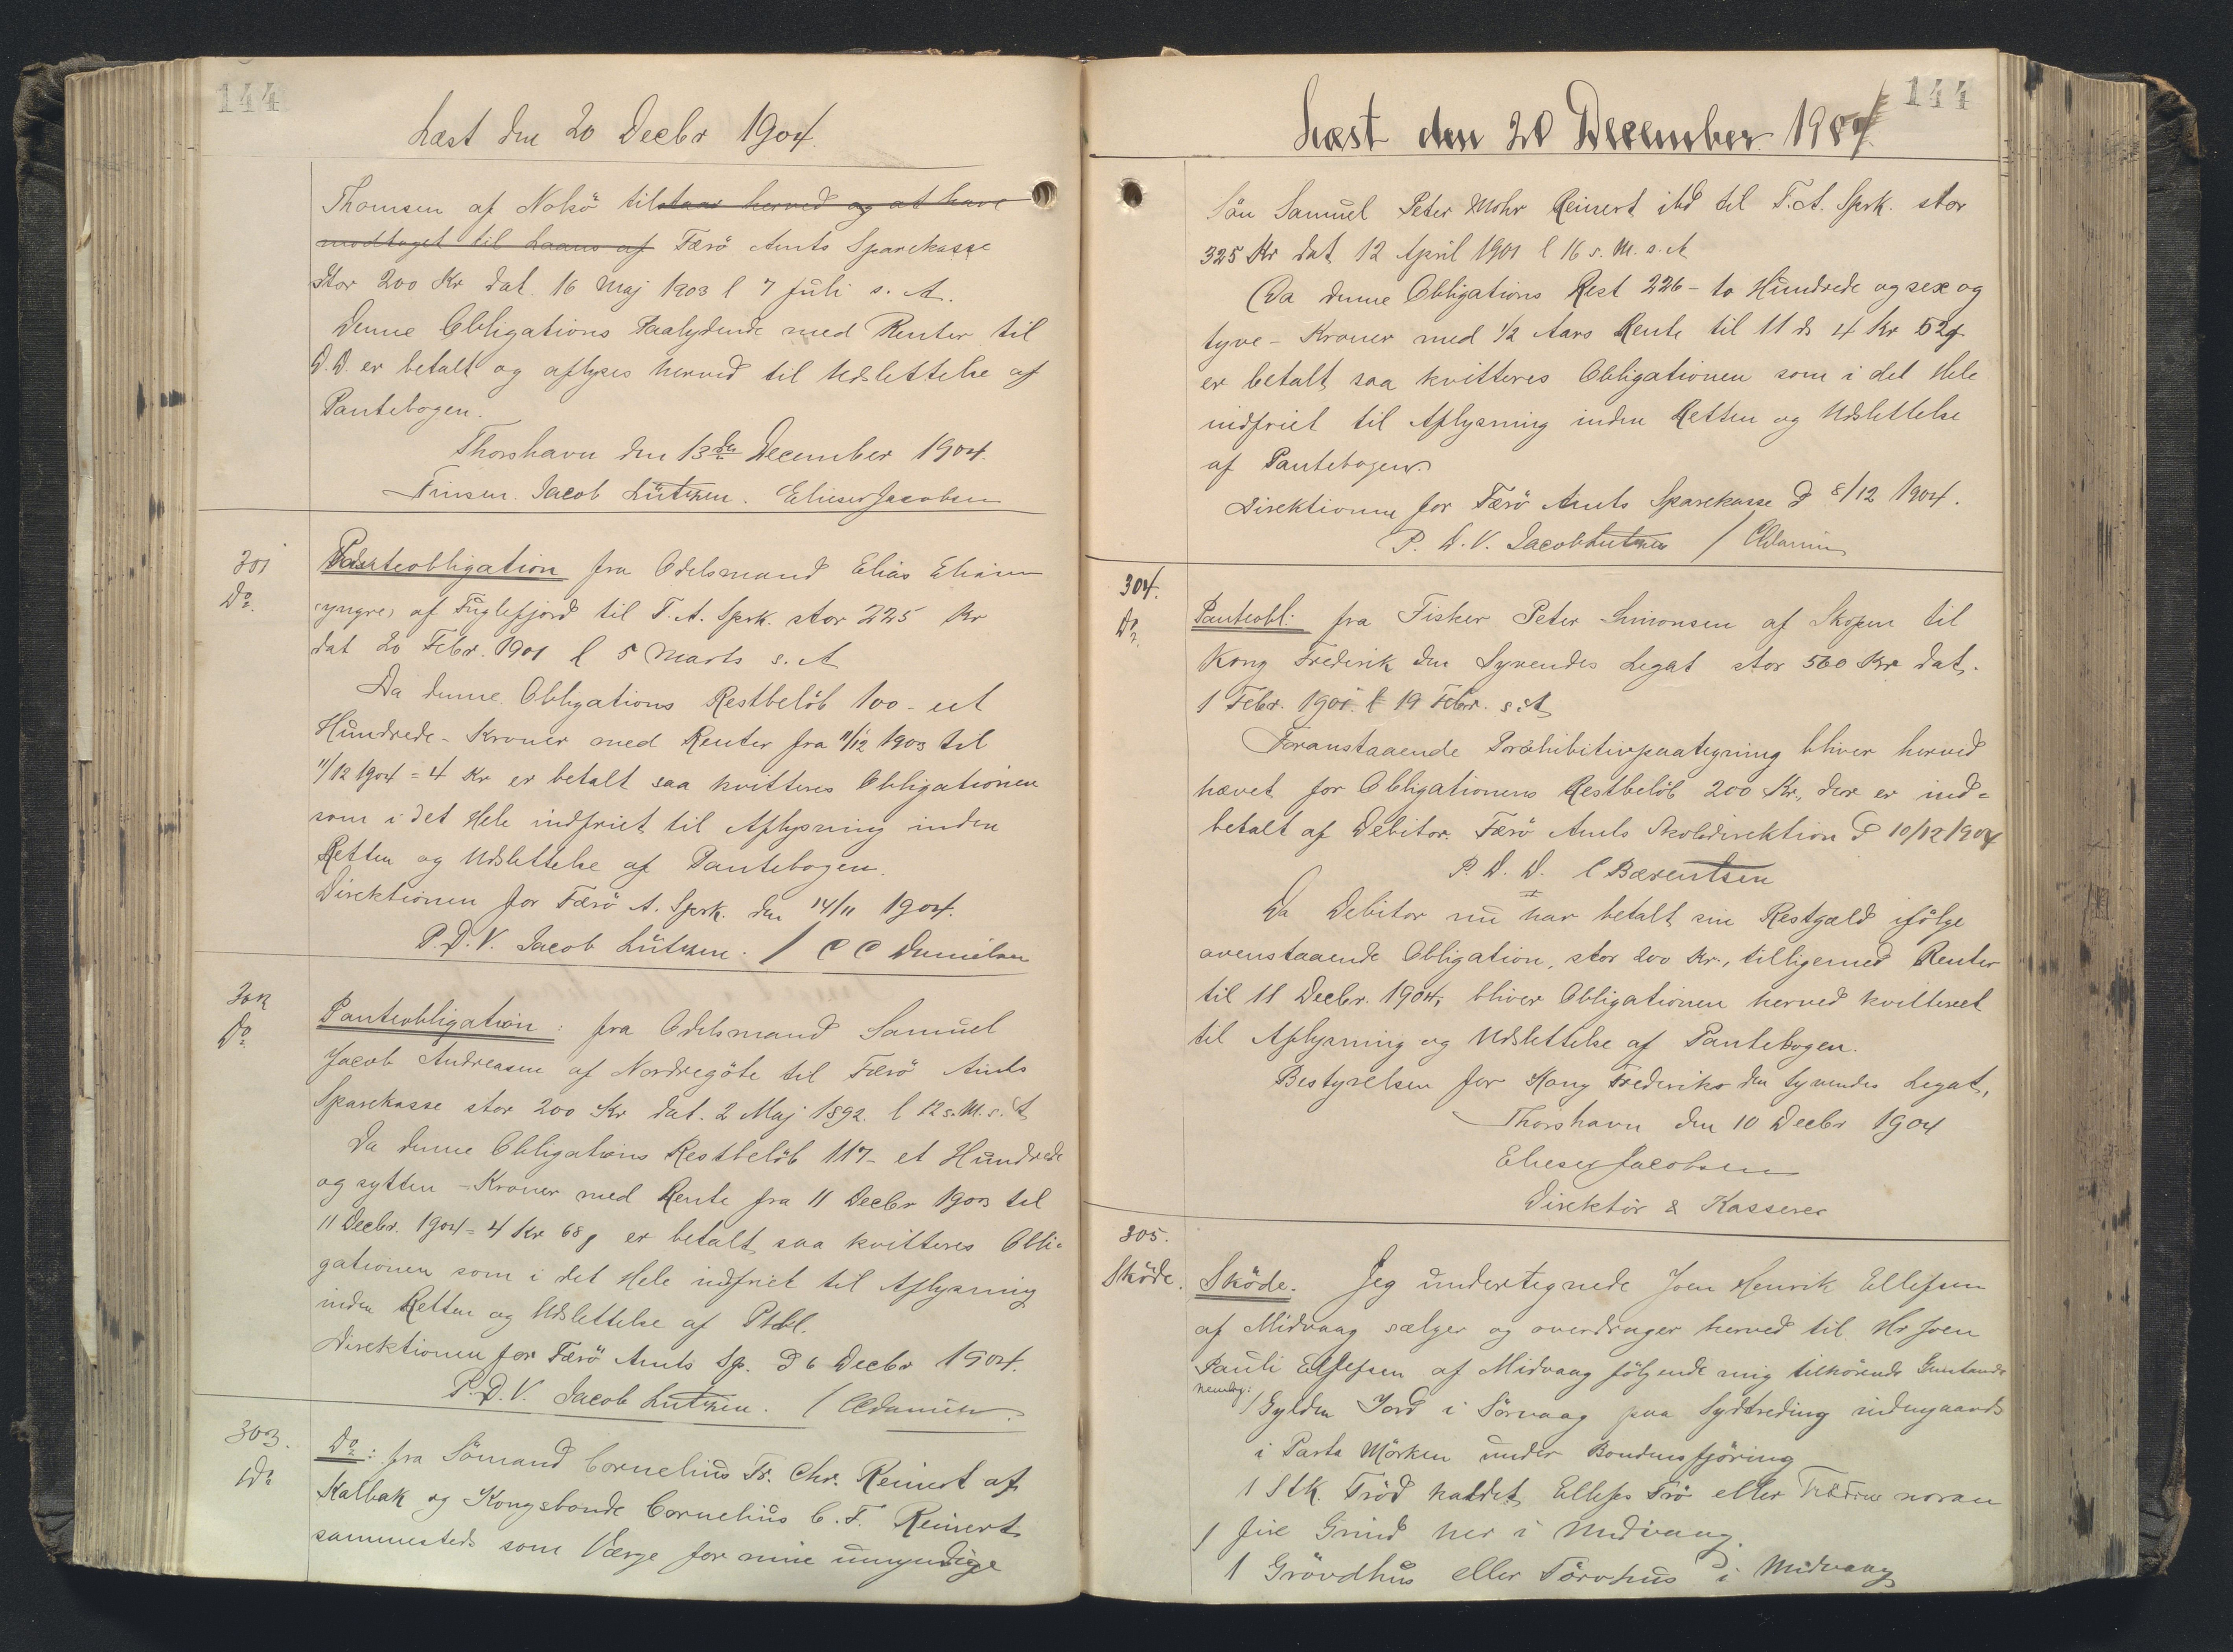 144
Læst den 20 Decbr 1904.
Thomsen af Nolsö tilstaar herved og at have
modtaget til Laans af Færö Amts Sparekasse
stor 200 Kr dat. 16 Maj 1903 l 7 Juli s. A.
Denne Obligations Paalydende med Renter til
D.D. er betalt og aflyses herved til Udslettelse af
Pantebogen.
Thorshavn den 13de December 1904.
Finsen. Jacob Lützen. Elieser Jacobsen
301
Do.
Panteobligation fra Odelsmand Elias Eliasen
(yngre) af Fuglefjord til F. A. Sprk. stor 225 Kr
dat 20 Febr. 1901 l 5 Marts s. A
Da denne Obligations Restbelöb 100 - et
Hundrede - Kroner med Renter fra 11/12 1903 til
11/12 1904 = 4 Kr er betalt saa kvitteres Obligationen
som i det Hele indfriet til Aflysning inden
Retten og Udslettelse af Pantebogen.
Direktionen for Færö A. Sprk. den 14/11 1904.
P.D.V. Jacob Lützen. / C C Danielsen
302
Do.
Panteobligation: fra Odelsmand Samuel
Jacob Andreasen af Nordregöte til Færö Amts
Sparekasse stor 200 Kr dat. 2 Maj 1892. l 12 s. M. s. A
Da denne Obligations Restbelöb 117 - et Hundrede
og sytten - Kroner med Rente fra 11 Decbr 1903 til
11 Decbr. 1904 = 4 Kr 68 er betalt saa kvitteres Obli=
gationen som i det Hele indfriet til Aflysning
inden Retten og Udslettelse af Ptbl.
Direktionen for Færö Amts Sp. D 6 Decbr 1904.
P.D.V. Jacob Lützen. /
303.
Do
Do: fra Sömand Cornelius Fr. Chr. Reinert af
Kalbak og Kongsbonde Cornelius C. F. Reinert
sammesteds som Værge for mine umyndige
144
Læst den 20 December 1904.
Sön Samuel Peter Mohr Reinert ibd til F. A. Sprk. stor
325 Kr dat 12 April 1901 l 16 s. M. s. A
Da denne Obligations Rest 226 - to Hundrede og sex og
tyve - Kroner med 1/2 Aars Rente til 11 ds 4 Kr 52
er betalt saa kvitteres Obligationen som i det Hele
indfriet til Aflysning inden Retten og Udslettelse
af Pantebogen.
Direktionen for Færö Amts Sparekasse D 8/12 1904.
P. D. V. Jacob Lützen /
304.
Do.
Panteobl. fra Fisker Peter Simonsen af Skopen til
Kong Frederik den Syvendes Legat stor 500 Kr dat.
1 Febr. 1901. l 19 Febr. s. A
Foranstaaende Prohibitivpaategning bliver herved
hævet for Obligationens Restbelöb 200 Kr., der er ind=
betalt af Debitor. Færö Amts Skoledirektion D 10/12 1904
P. D. D. C Bærentsen
Da Debitor nu har betalt sin Restgæld ifölge
ovenstaaende Obligation, stor 200 Kr., tilligemed Renter
til 11 Decbr. 1904, bliver Obligationen herved kvitteret
til Aflysning og Udslettelse af Pantebogen.
Bestyrelsen for Kong Frederiks den Syvendes Legat,
Thorshavn den 10 Decbr 1904
Elieser Jacobsen
Direktör & Kasserer
305.
Sköde.
Sköde. Jeg undertegnede Joen Henrik Ellefsen
af Midvaag sælger og overdrager herved til Hr Joen
Pauli Ellefsen af Midvaag fölgende mig tilhörende
nemlig:
1 Gylden Jord i Sörvaag paa Sydtreding
i Parta Mörken under Bondens
1 Stk. Tröd kaldet Ellefs Trö eller noran
fire Grind her i Midvaag
1 Gróvdhus eller Törvhus i Midvaag